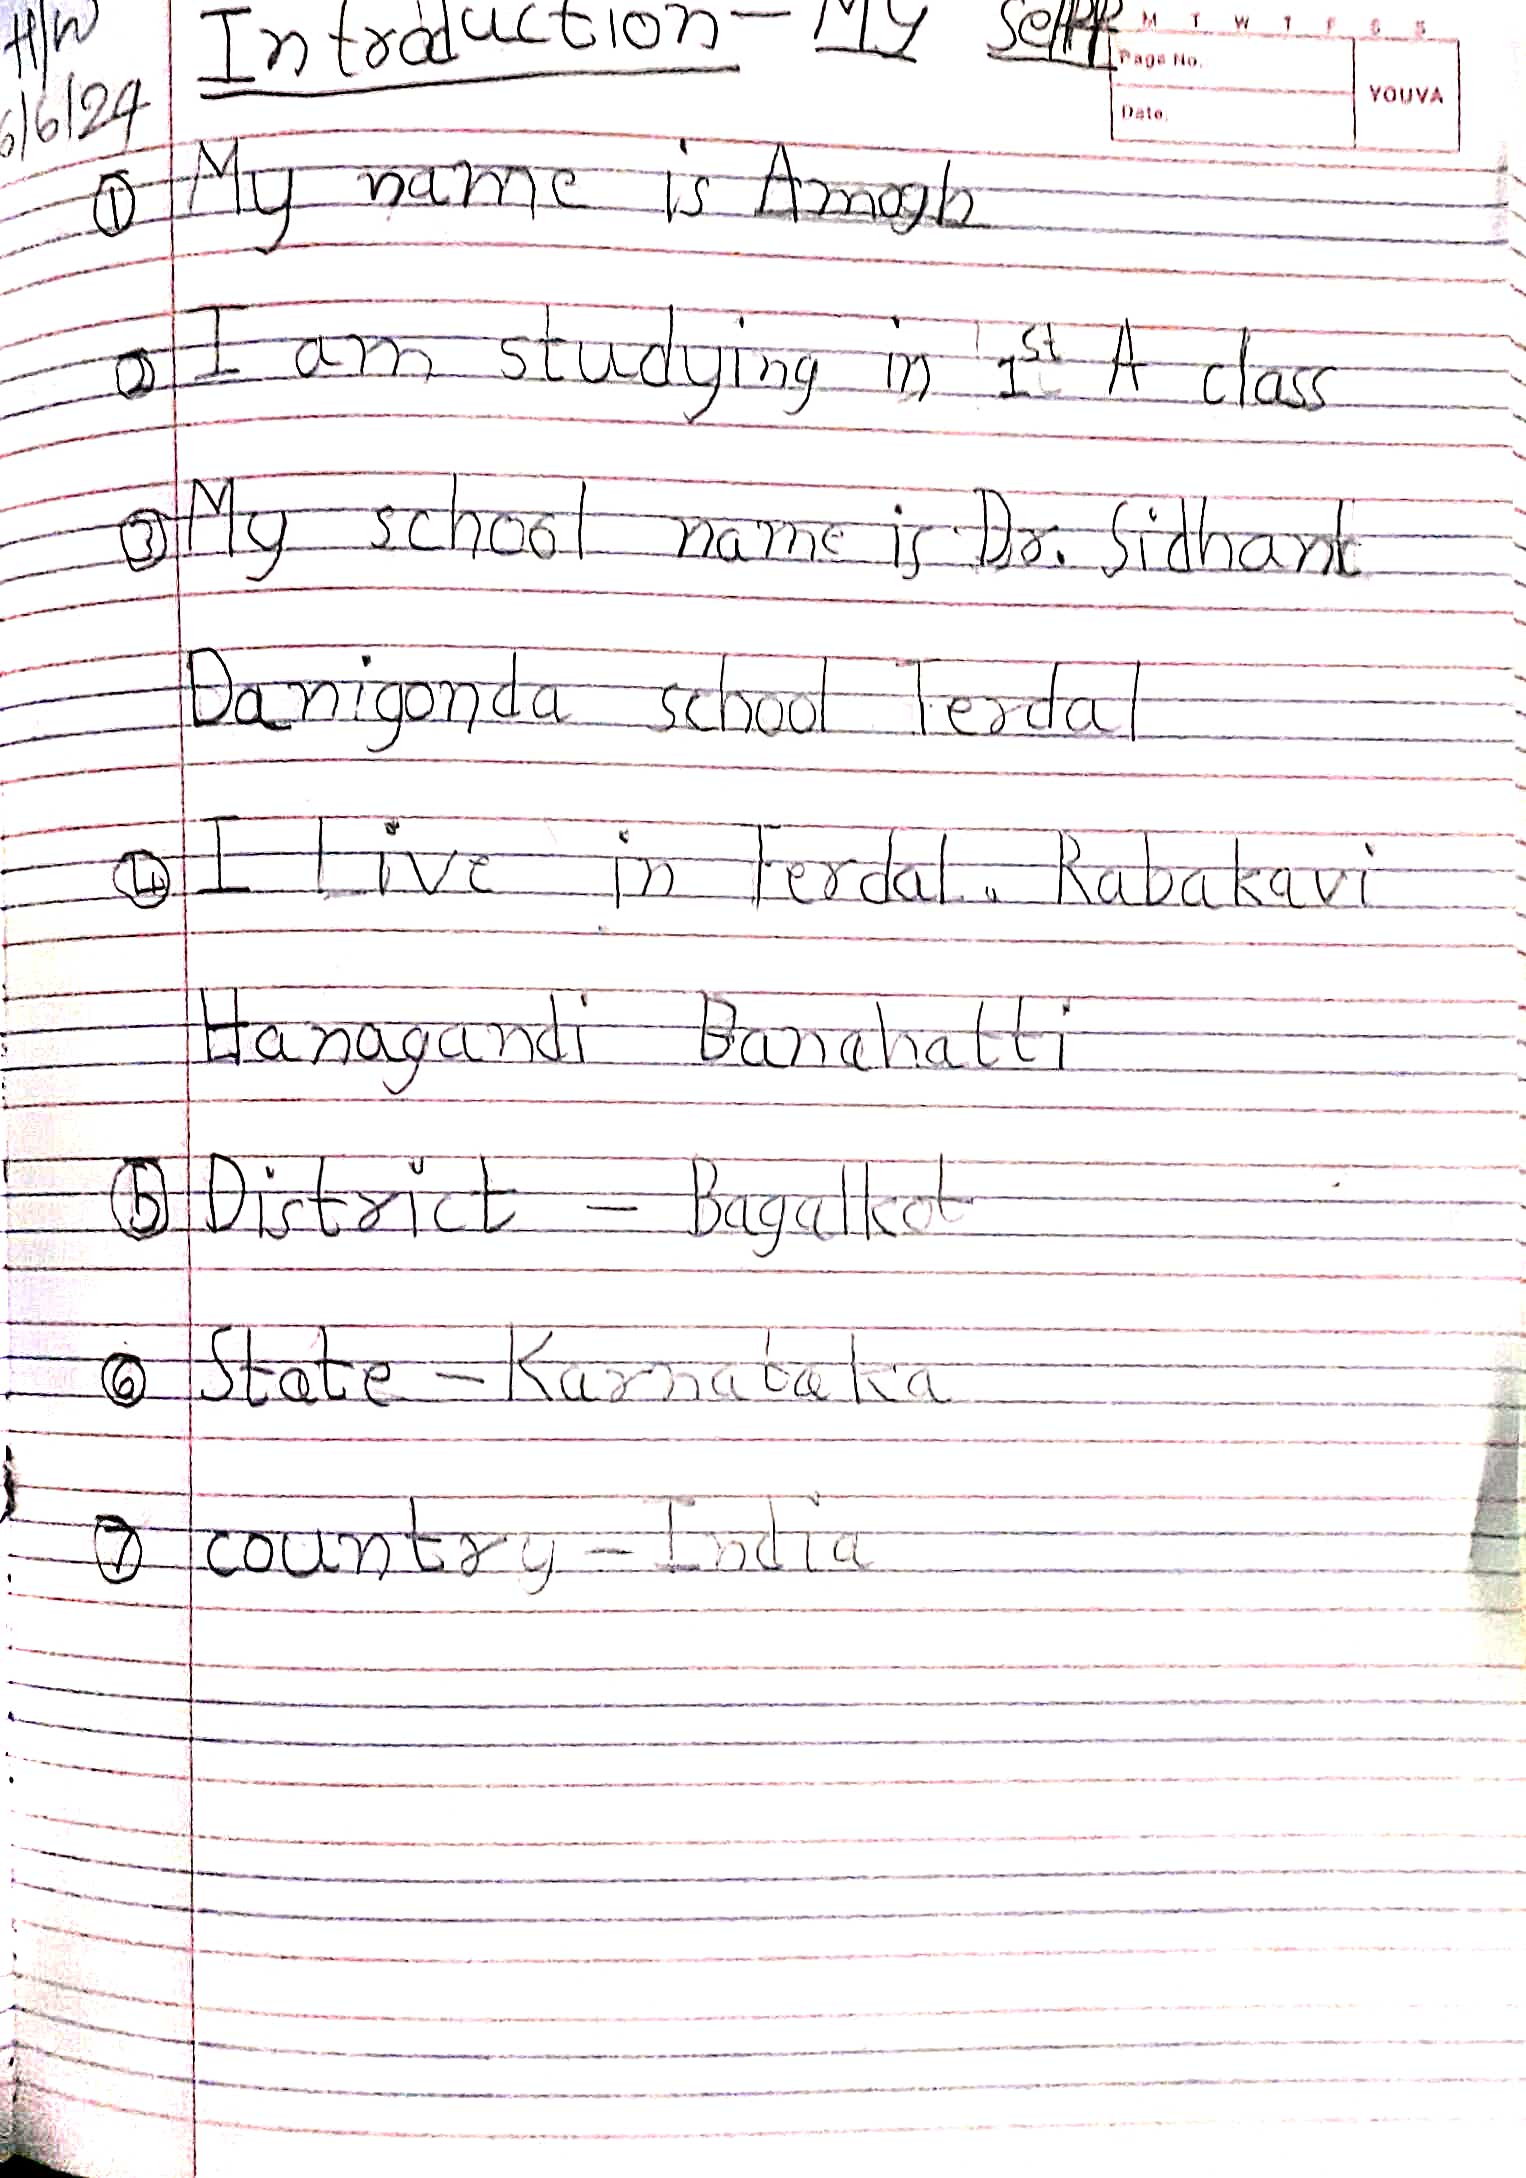 H/W Introduction - My Self
M T W T F S S
Page No.
YOUVA
6/6/24
Date.
① My name is Amogh
② I am studying in 1st A class
③ My school name is Dr. Sidhant
Danigonda school Terdal
④ I Live in Terdal. Rabakavi
Hanagandi Banahatti
⑤ District - Bagalkot
⑥ State - Karnataka
⑦ country - India